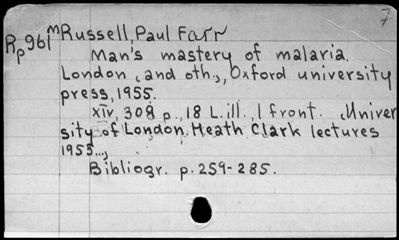 7
Rp961 m Russell, Paul Farr
Man's mastery of malaria.
London, and oth., Oxford university
press, 1955.
xiv, 308 p., 18 L. ill., 1 front. (Univer
sity of London, Heath Clark lectures
1953...,
Bibliogr. p. 259-285.